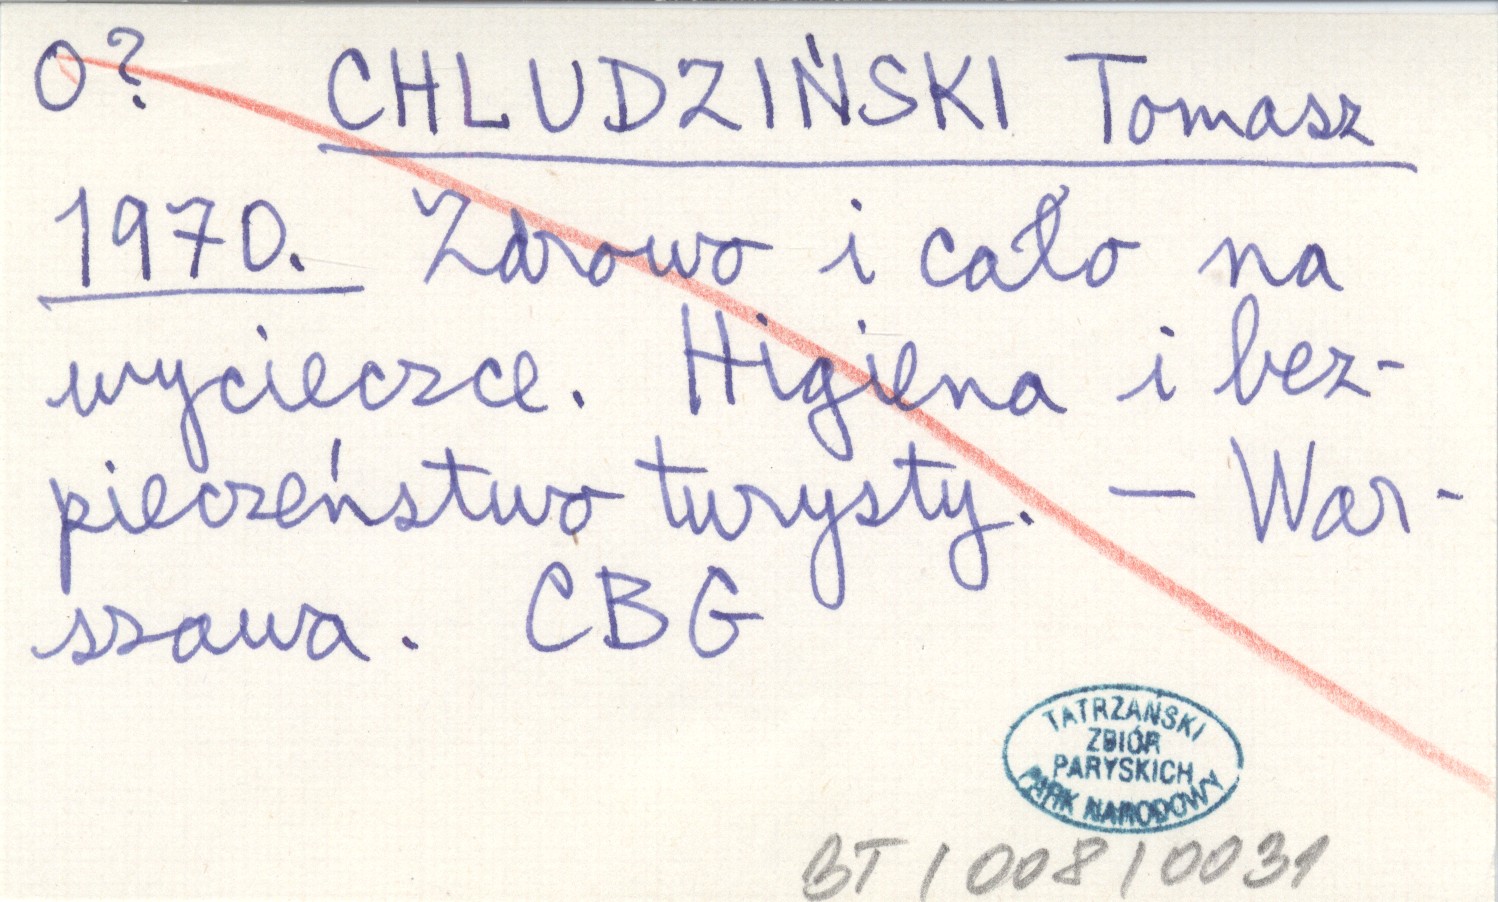 0? CHLUDZIŃSKI Tomasz
1970. Zdrowo i cało na
wycieczce. Higiena i bez-
pieczeństwo turysty. — War-
szawa. CBG
TATRZAŃSKI
ZBIÓR
PARYSKICH
PARK NARODOWY
BT/008/0031